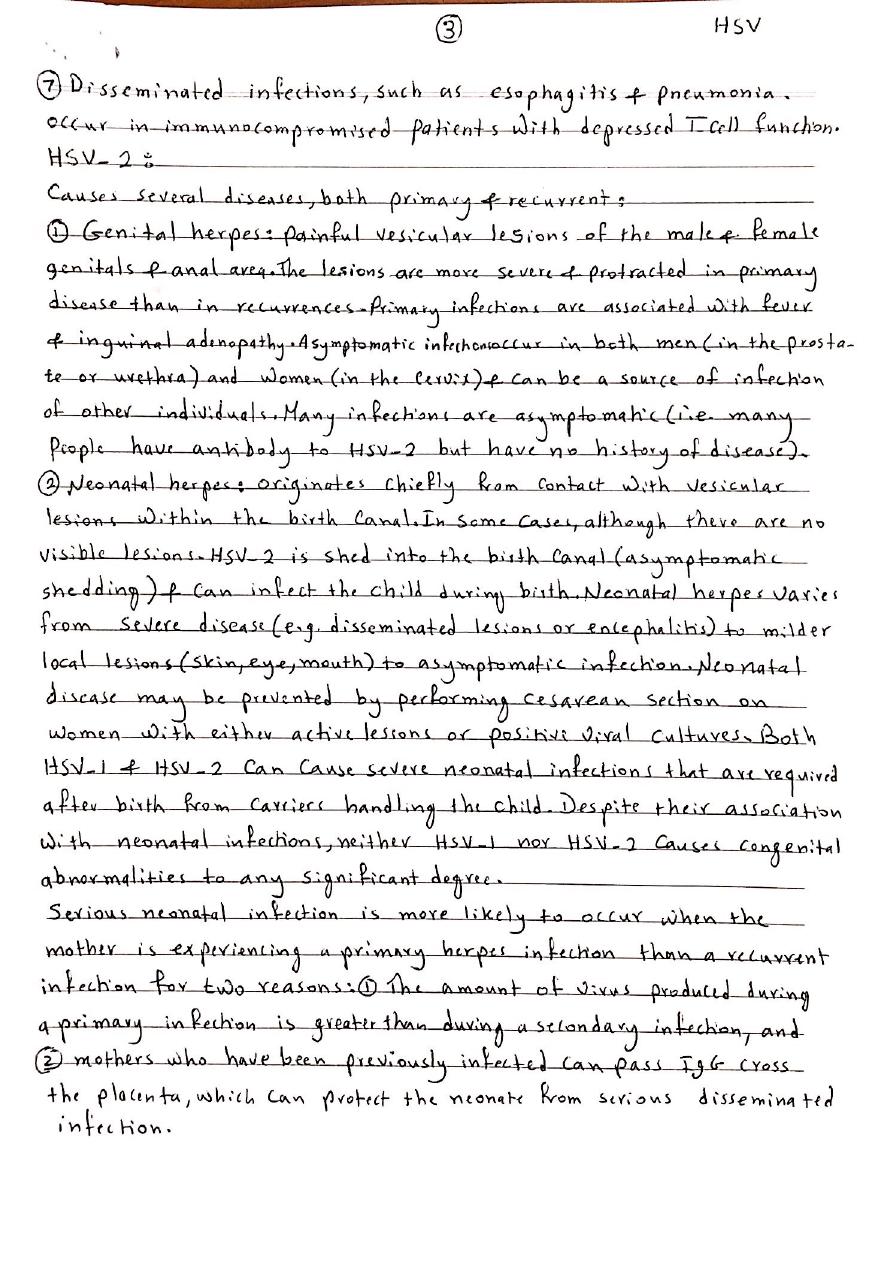 ③ HSV
⑦ Disseminated infections, such as esophagitis & pneumonia.
occur in immunocompromised patients with depressed T cell function.
HSV-2:
Causes several diseases, both primary & recurrent:
① Genital herpes: painful vesicular lesions of the male & female
genitals & anal area. The lesions are more severe & protracted in primary
disease than in recurrences. Primary infections are associated with fever
& inguinal adenopathy. Asymptomatic infections occur in both men (in the prosta-
te or urethra) and women (in the cervix) & can be a source of infection
of other individuals. Many infections are asymptomatic (i.e. many
people have antibody to HSV-2 but have no history of disease).
② Neonatal herpes: originates chiefly from contact with vesicular
lesions within the birth canal. In some cases, although there are no
visible lesions. HSV-2 is shed into the birth canal (asymptomatic
shedding) & can infect the child during birth. Neonatal herpes varies
from severe disease (e.g. disseminated lesions or encephalitis) to milder
local lesions (skin, eye, mouth) to asymptomatic infection. Neonatal
disease may be prevented by performing cesarean section on
women with either active lessons or positive viral cultures. Both
HSV-1 & HSV-2 can cause severe neonatal infections that are required
after birth from carriers handling the child. Despite their association
with neonatal infections, neither HSV-1 nor HSV-2 causes congenital
abnormalities to any significant degree.
Serious neonatal infection is more likely to occur when the
mother is experiencing a primary herpes infection than a recurrent
infection for two reasons: ① The amount of virus produced during
a primary infection is greater than during a secondary infection, and
② mothers who have been previously infected can pass IgG cross
the placenta, which can protect the neonate from serious disseminated
infection.